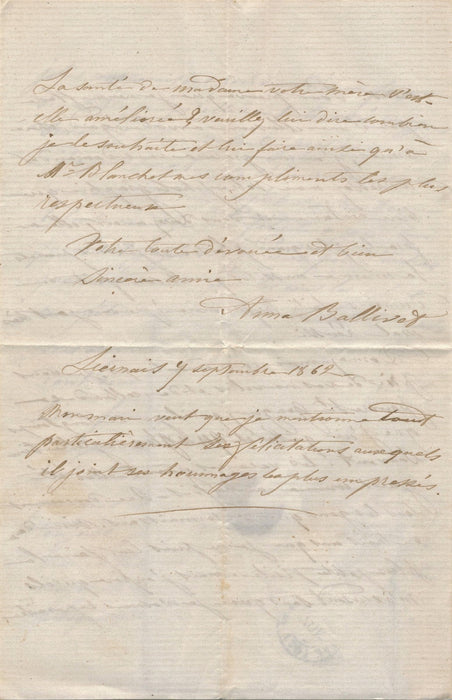 La santé de madame votre mère s'est
elle améliorée ? veuillez lui dire combien
je le souhaite et lui faire ainsi qu'à
Mr Blanchet mes compliments les plus
respectueux
Votre toute dévouée et bien
sincère amie
Anna Ballivet
Liernais 7 septembre 1862
Mon mari veut que je mentionne tout
particulièrement ses félicitations auxquels
il joint ses hommages les plus empressés.